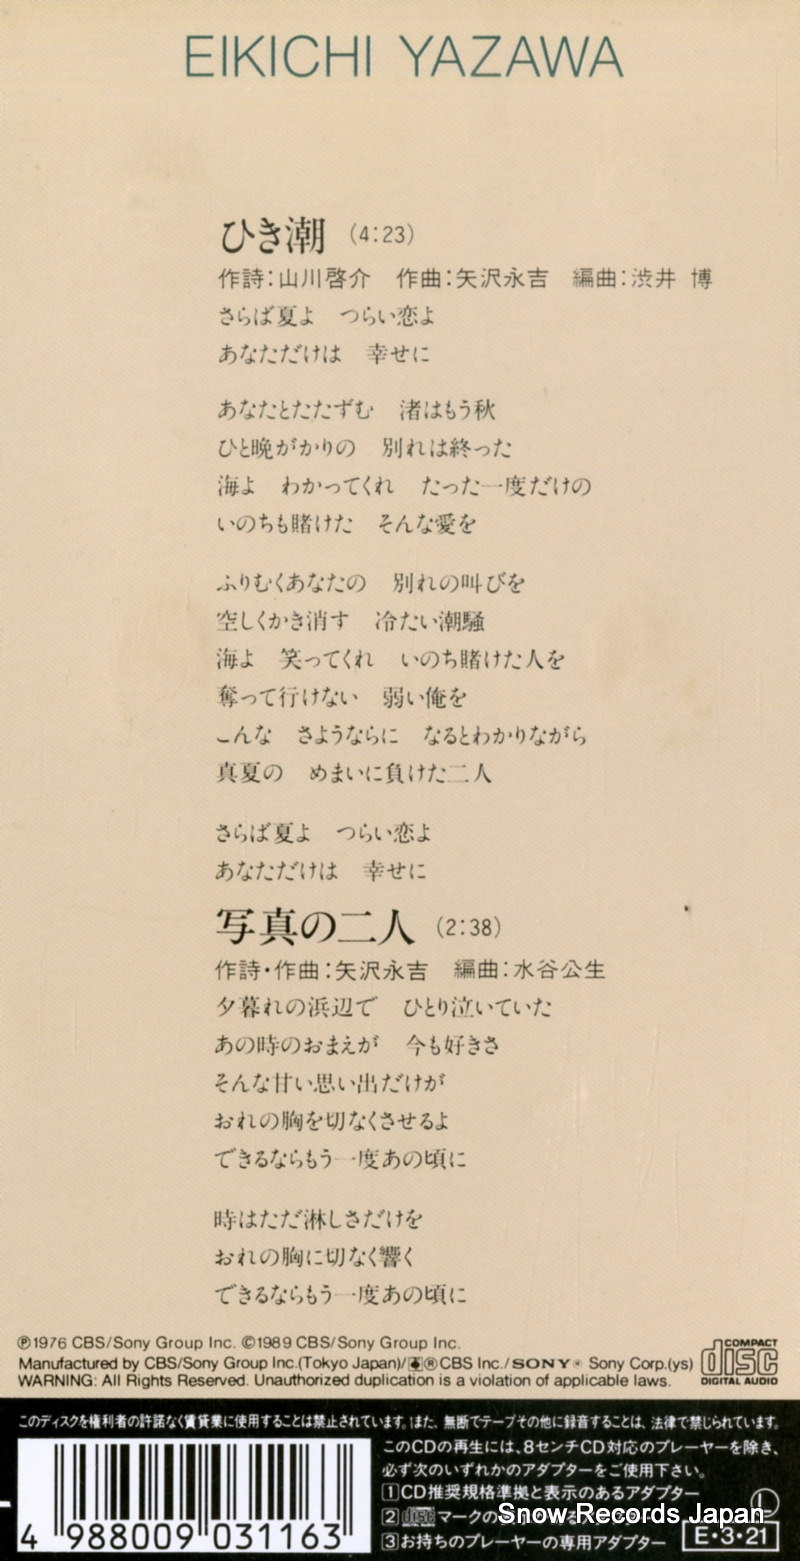 EIKICHI YAZAWA
ひき潮 (4:23)
作詩:山川啓介 作曲:矢沢永吉 編曲:渋井 博
さらば夏よ つらい恋よ
あなただけは 幸せに
あなたとたたずむ 渚はもう秋
ひと晩がかりの 別れは終った
海よ わかってくれ たった一度だけの
いのちも賭けた そんな愛を
ふりむくあなたの 別れの叫びを
空しくかき消す 冷たい潮騒
海よ 笑ってくれ いのち賭けた人を
奪って行けない 弱い俺を
こんな さようならに なるとわかりながら
真夏の めまいに負けた二人
さらば夏よ つらい恋よ
あなただけは 幸せに
写真の二人 (2:38)
作詩・作曲:矢沢永吉 編曲:水谷公生
夕暮れの浜辺で ひとり泣いていた
あの時のおまえが 今も好きさ
そんな甘い思い出だけが
おれの胸を切なくさせるよ
できるならもう一度あの頃に
時はただ淋しさだけを
おれの胸に切なく響く
できるならもう一度あの頃に
℗1976 CBS/Sony Group Inc. ©1989 CBS/Sony Group Inc.
Manufactured by CBS/Sony Group Inc.(Tokyo Japan)/®CBS Inc./SONY® Sony Corp.(ys)
WARNING: All Rights Reserved. Unauthorized duplication is a violation of applicable laws.
COMPACT disc DIGITAL AUDIO
このディスクを権利者の許諾なく賃貸業に使用することは禁止されています。また、無断でテープその他に録音することは、法律で禁じられています。
このCDの再生には、8センチCD対応のプレーヤーを除き、
必ず次のいずれかのアダプターをご使用下さい。
1 CD推奨規格準拠と表示のあるアダプター
2 disc マークの
3 お持ちのプレーヤーの専用アダプター
L
E・3・21
4 988009 031163
Snow Records Japan